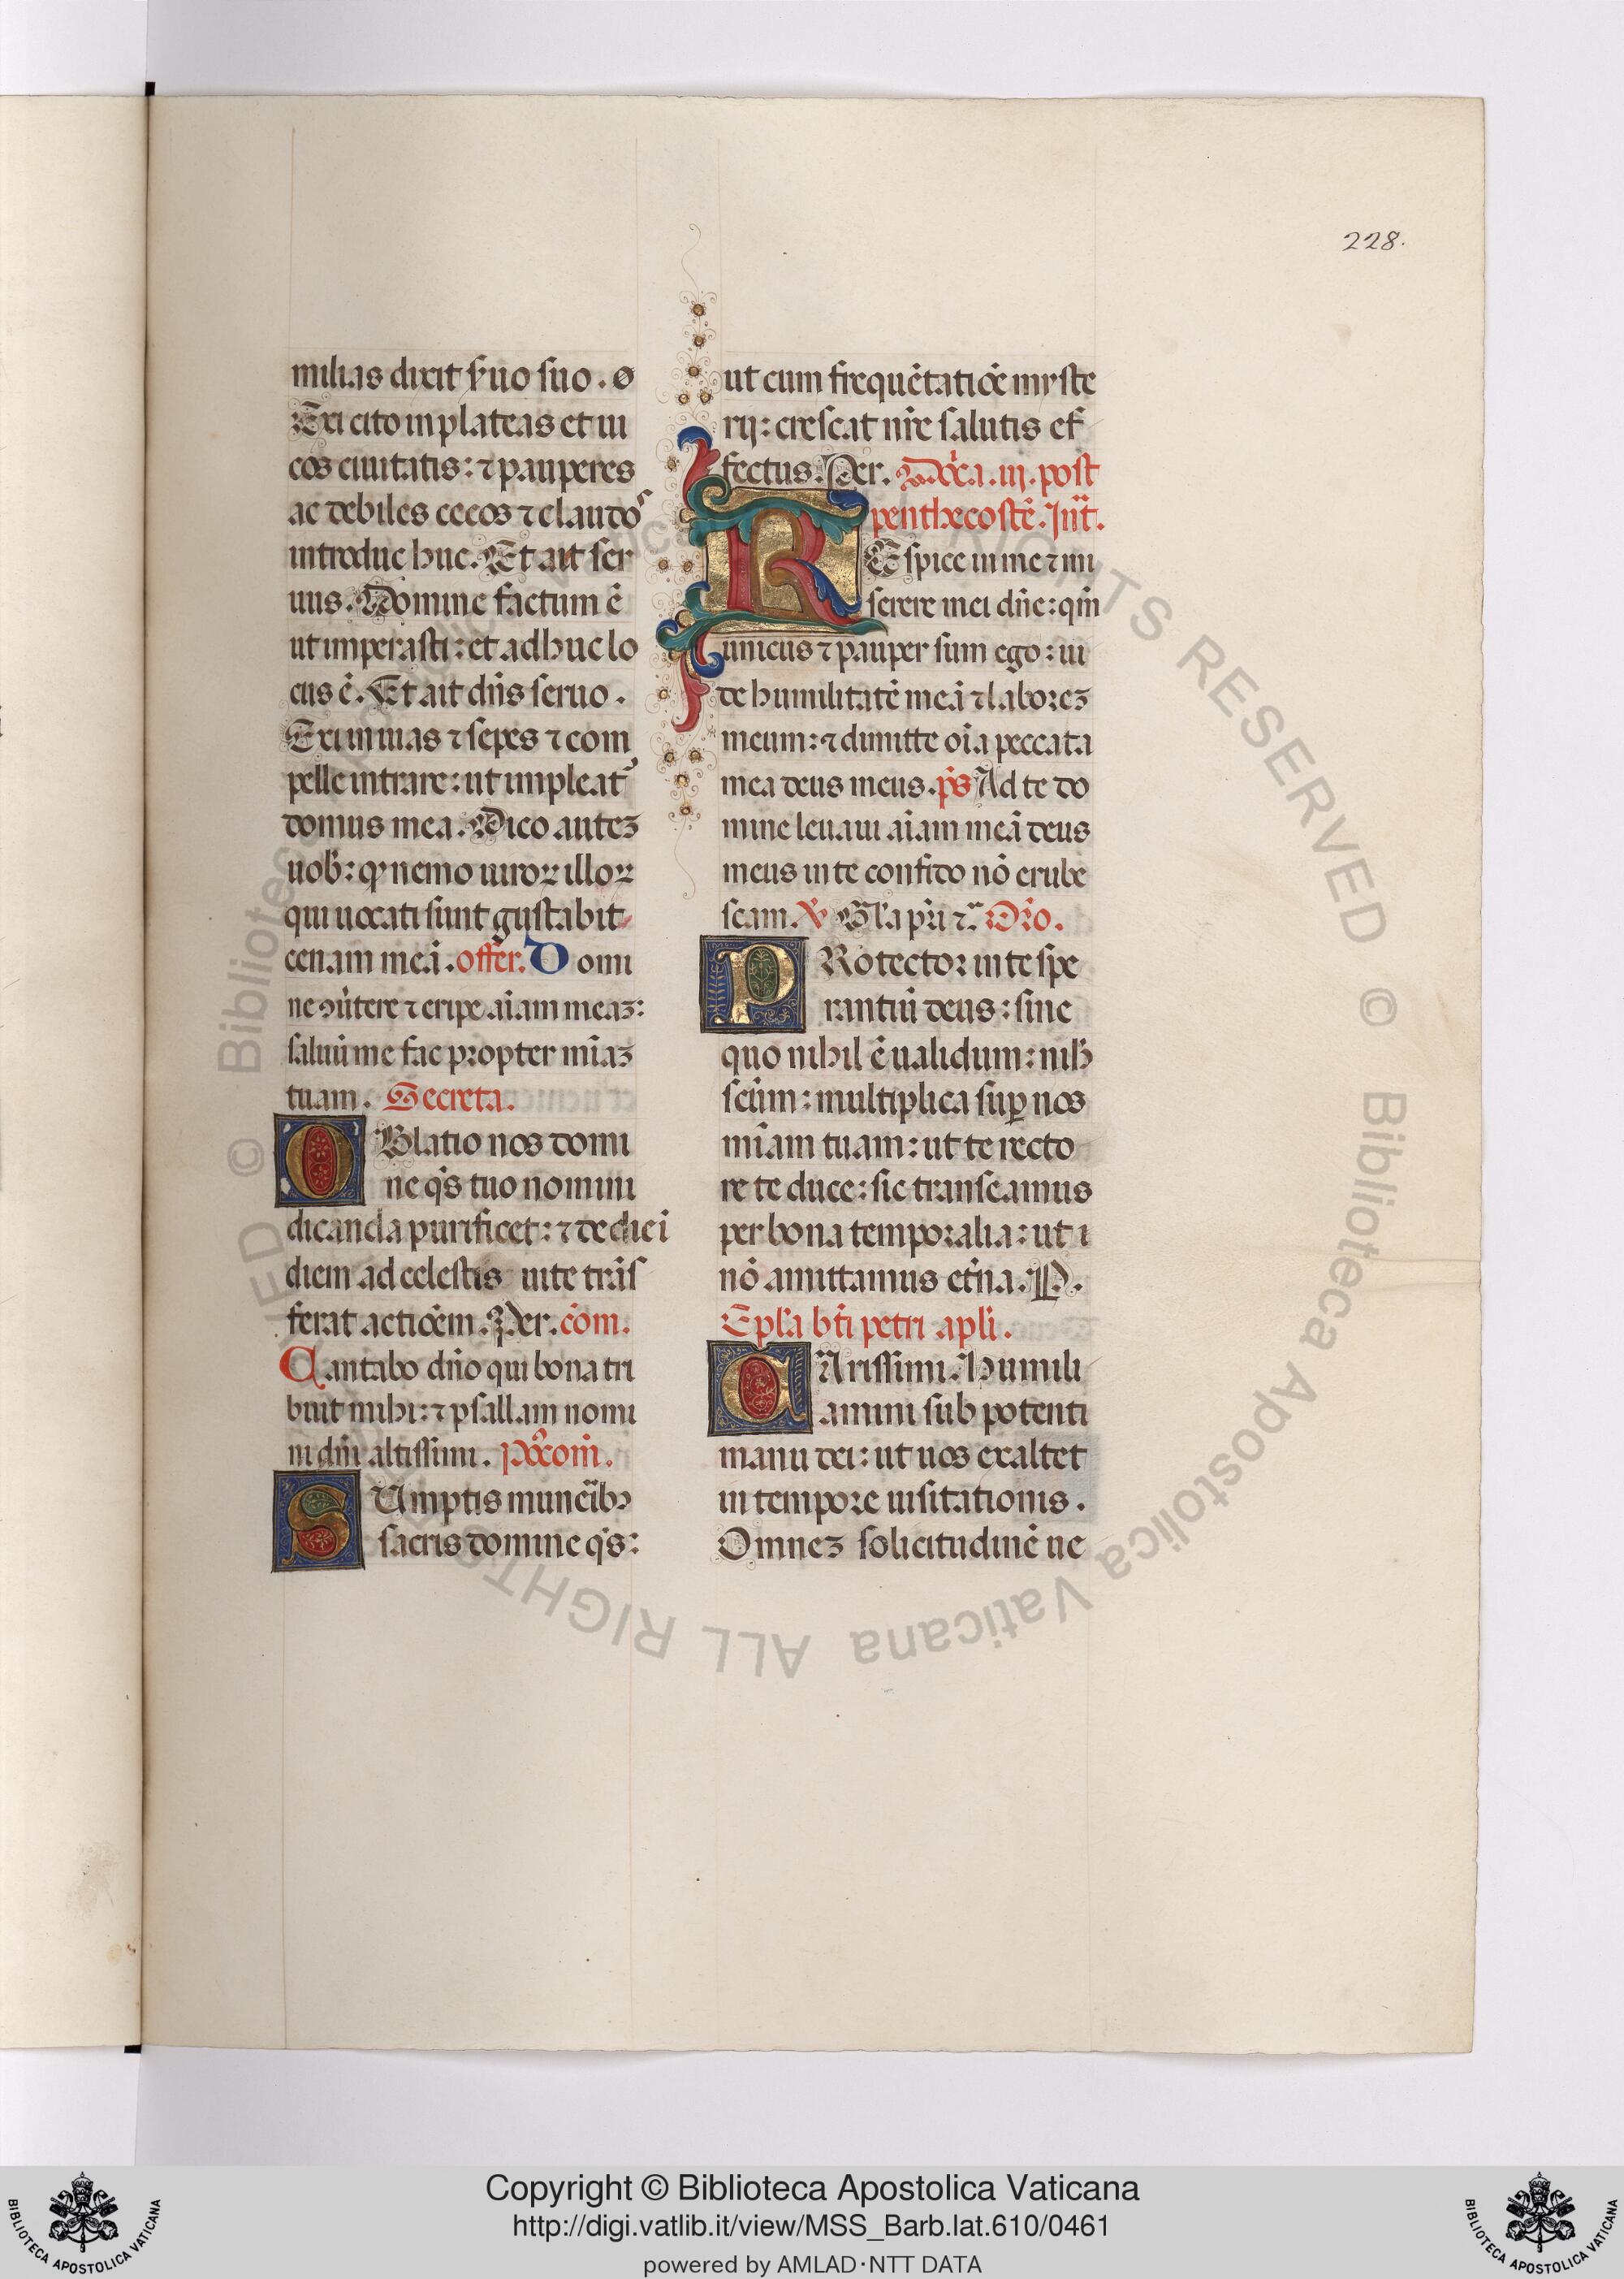 228.
milias dixit s̃uo suo. ø
Exi cito in plateas et ui
cos ciuitatis: ⁊ pauperes
ac debiles cecos ⁊ claudos
introduc huc. Et ait ser
uus. Domine factum ē
ut imperasti: et adhuc lo
cus ē. Et ait dñs seruo.
Exi in uias ⁊ sepes ⁊ com
pelle intrare: ut impleat᷑
domus mea. Dico auteꝫ
uob̃: ꝙ nemo uiroꝝ illoꝝ
qui uocati sunt gustabit
cenam meā. offer. Domi
ne ↄũtere ⁊ eripe aīam meaꝫ:
saluū me fac propter mĩaꝫ
tuam. Secreta.
OBlatio nos domi
ne q̃s tuo nomini
dicanda purificet: ⁊ de die ī
diem ad celestis uite trãs
ferat actiõem. Per. cõm.
Cantabo dño qui bona tri
buit mihi: ⁊ psallam nomi
ni dñi altissimi. p̃ꝯcom̃.
SUmptis munẽibꝫ
sacris domine q̃s:
ut cum frequẽtatiõe myste
rij: crescat nr̃e salutis ef
fectus. Per. Dñica .iij. post
penthecostẽ. Int̃.
REspice in me ⁊ mi
serere mei dñe: qm̃
unicus ⁊ pauper sum ego: ui
de humilitatẽ meã ⁊ laboreꝫ
meum: ⁊ dimitte oĩa peccata
mea deus meus. p̃s Ad te do
mine leuaui aĩam meã deus
meus in te confido nõ erube
scam. V̓ Gl̃a pr̃i ⁊c̃ Or̃o.
PRotector in te spe
rantiũ deus: sine
quo nihil ẽ ualidum: nih̃
scũm: multiplica suꝑ nos
mĩam tuam: ut te recto
re te duce: sic transeamus
per bona temporalia: ut ĩ
nõ amittamus etñna. P.
Epl̃a bt̃i petri apl̃i.
CArissimi. Humili
amini sub potenti
manu dei: ut uos exaltet
in tempore uisitationis.
Omneꝫ solicitudinẽ ue
Copyright © Biblioteca Apostolica Vaticana
http://digi.vatlib.it/view/MSS_Barb.lat.610/0461
powered by AMLAD·NTT DATA
BIBLIOTECA APOSTOLICA VATICANA
BIBLIOTECA APOSTOLICA VATICANA
© Biblioteca Apostolica Vaticana ALL RIGHTS RESERVED